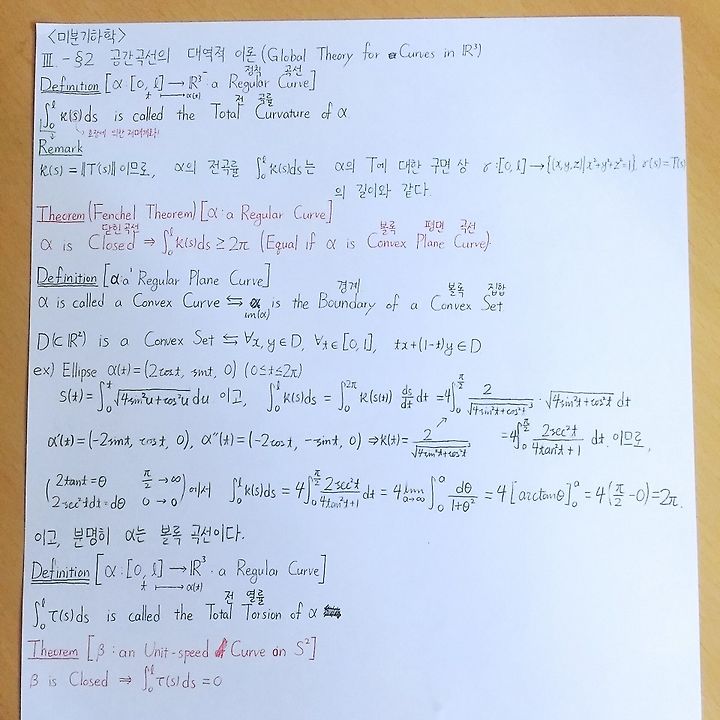 <미분기하학>
III. - §2 공간곡선의 대역적 이론 (Global Theory for Curves in ℝ³)
정칙 곡선
Definition [α : [0, l] → ℝ³ · a Regular Curve]
t ↦ α(t)
전 곡률
∫₀ˡ κ(s)ds is called the Total Curvature of α
Remark
κ(s) = ‖T'(s)‖ 이므로, α의 전곡률 ∫₀ˡ κ(s)ds는 α의 T에 대한 구면 상 σ : [0, l] → {(x, y, z) | x²+y²+z²=1}, σ(s) = T(s)
의 길이와 같다.
Theorem (Fenchel Theorem) [α : a Regular Curve]
닫힌곡선 볼록 평면 곡선
α is Closed ⇒ ∫₀ˡ κ(s)ds ≥ 2π (Equal if α is Convex Plane Curve).
Definition [α : a Regular Plane Curve]
경계 볼록 집합
α is called a Convex Curve ⇆ α is the Boundary of a Convex Set
im(α)
D(⊂ℝ²) is a Convex Set ⇆ ∀x, y ∈ D, ∀t ∈ [0, 1], tx+(1-t)y ∈ D
ex) Ellipse α(t) = (2cost, sint, 0) (0≤t≤2π)
S(t) = ∫₀ᵗ √(4sin²u+cos²u) du 이고, ∫₀ˡ κ(s)ds = ∫₀^(2π) κ(s(t)) ds/dt dt = 4∫₀^(π/2) 2/√(4sin²t+cos²t)³ · √(4sin²t+cos²t) dt
α'(t) = (-2sint, cost, 0), α''(t) = (-2cost, -sint, 0) ⇒ κ(t) = 2/√(4sin²t+cos²t)³ = 4∫₀^(π/2) 2sec²t/(4tan²t+1) dt. 이므로,
(2tant = θ π/2 → ∞
2sec²tdt = dθ 0 → 0) 에서 ∫₀ˡ κ(s)ds = 4∫₀^(π/2) 2sec²t/(4tan²t+1) dt = 4 lim_(a→∞) ∫₀ᵃ dθ/(1+θ²) = 4 [arctanθ]₀ᵃ = 4(π/2 - 0) = 2π.
이고, 분명히 α는 볼록 곡선이다.
Definition [α : [0, l] → ℝ³ · a Regular Curve]
t ↦ α(t)
전 열률
∫₀ˡ τ(s)ds is called the Total Torsion of α
Theorem [β : an Unit-speed Curve on S²]
β is Closed ⇒ ∫₀ˡ τ(s)ds = 0